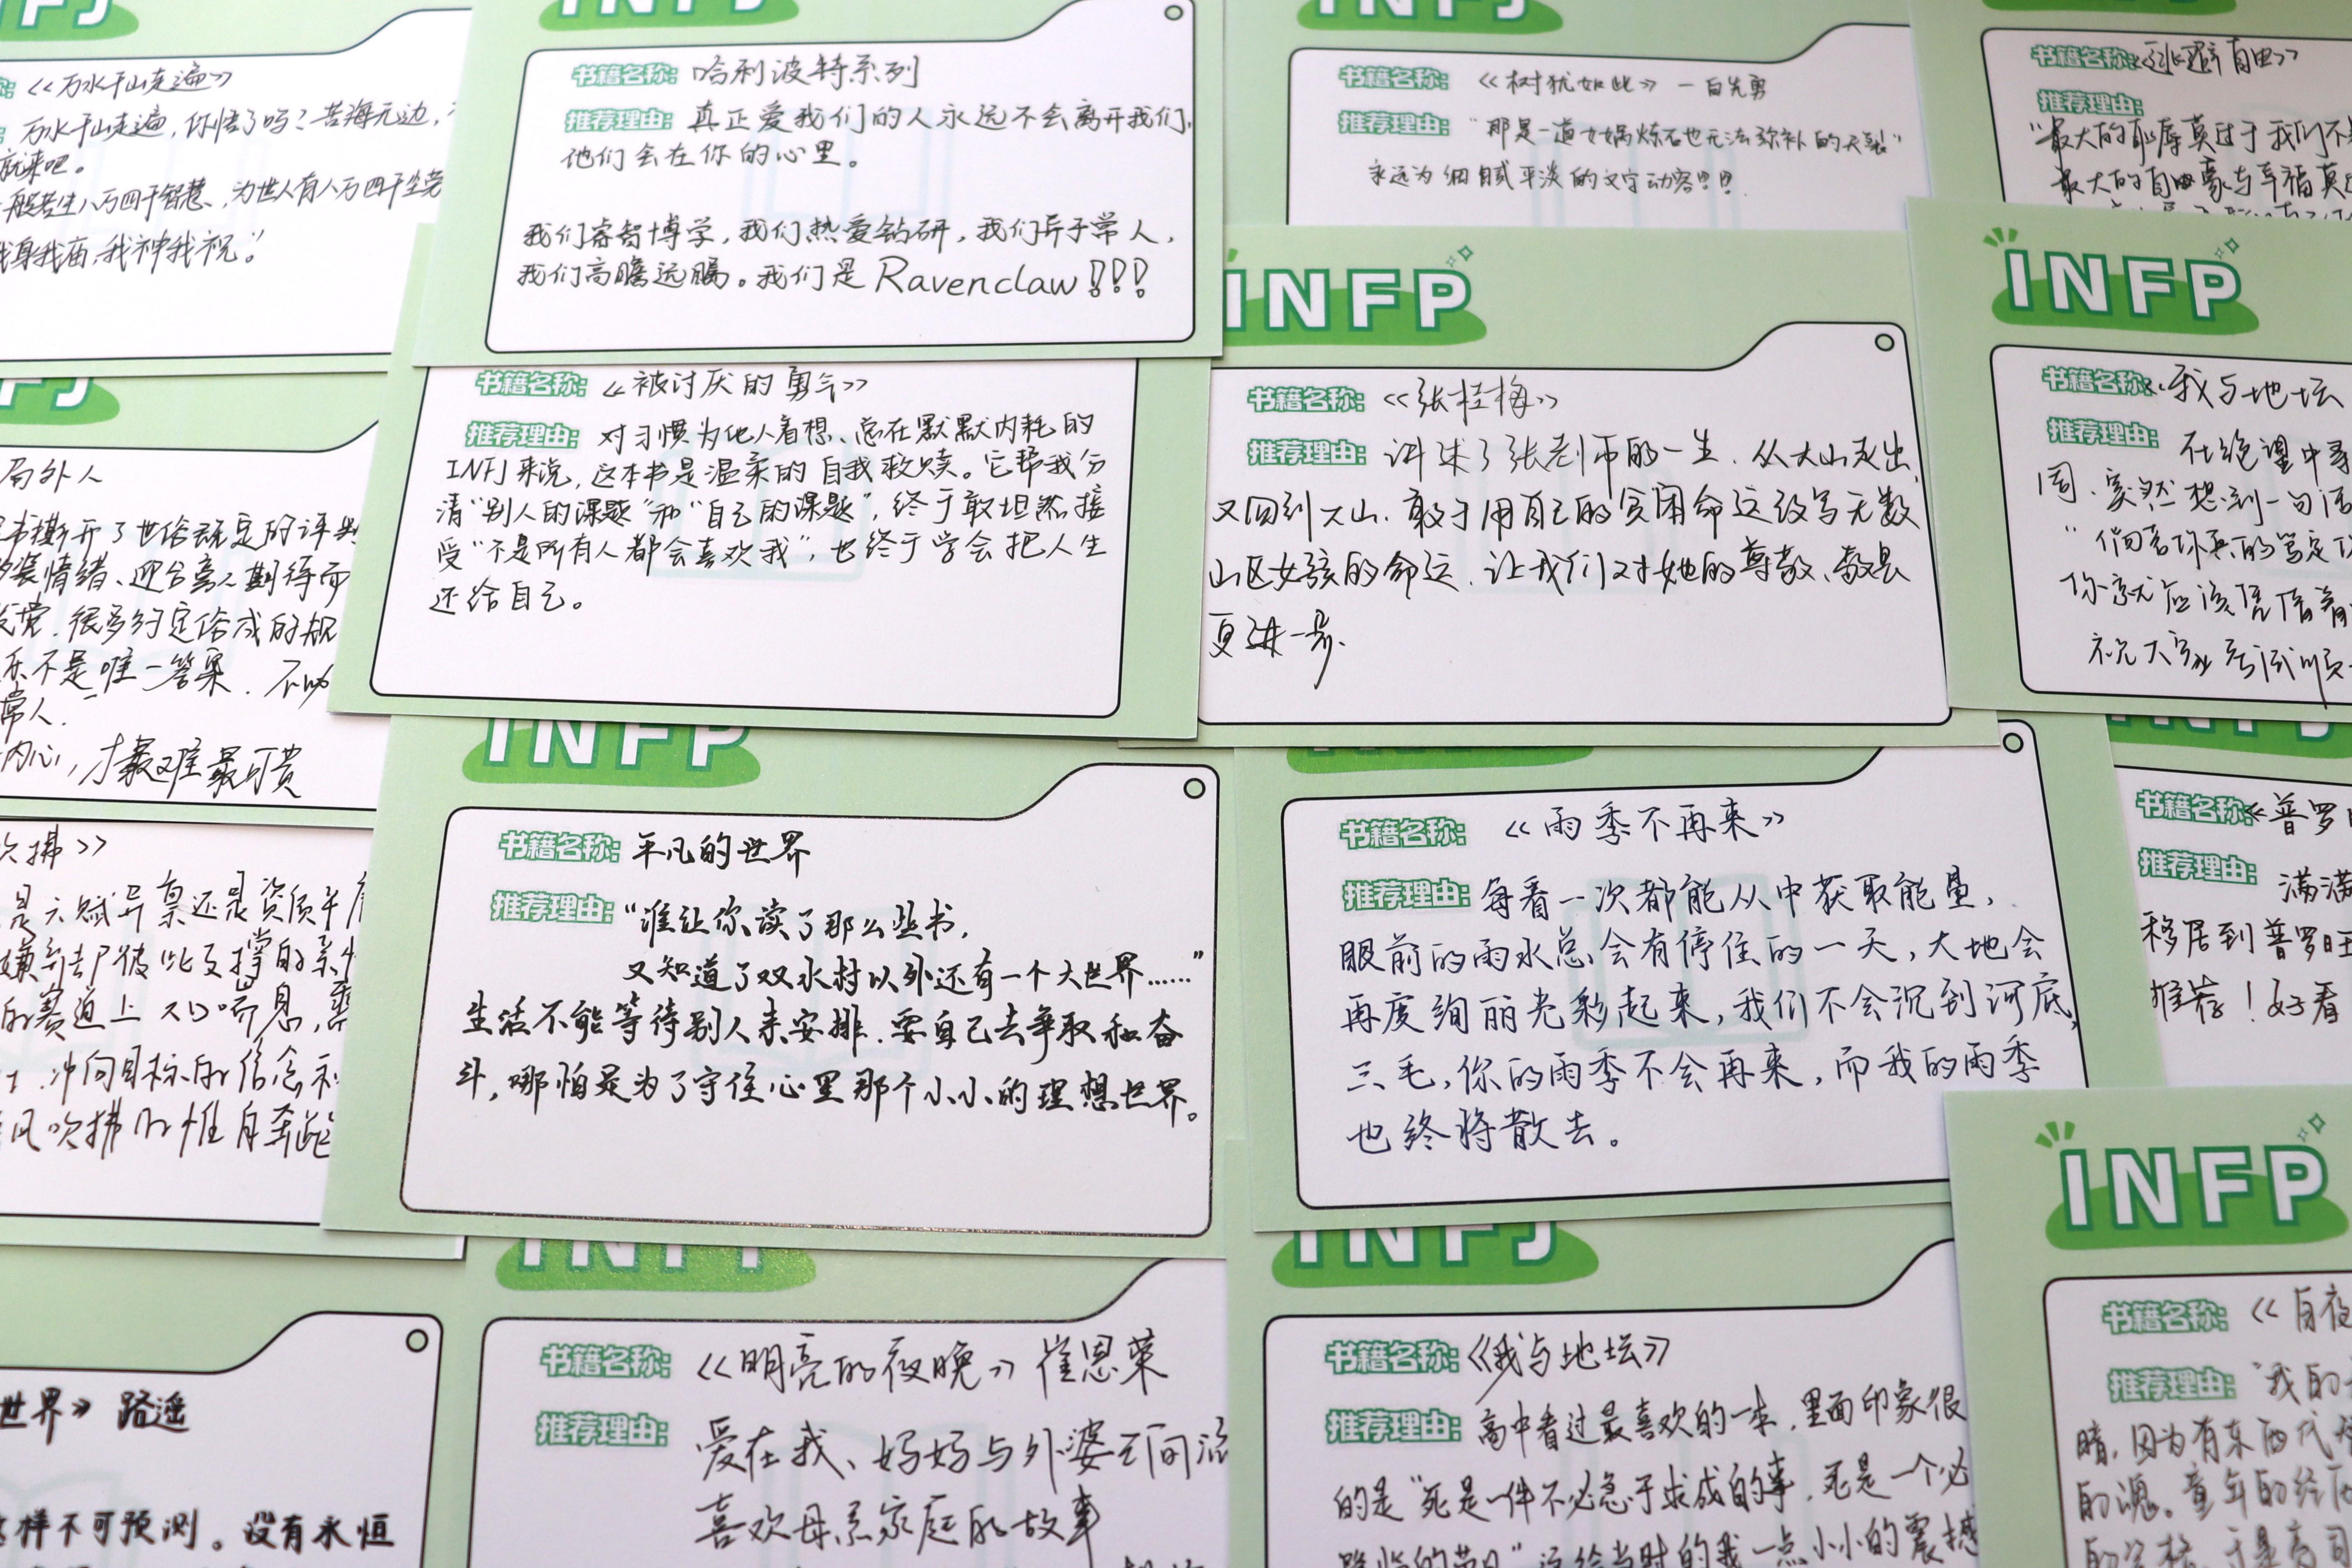 《万水千山走遍》
万水千山走遍,你悟了吗?苦海无边,
就来吧。
般若生八万四千智慧,为世人有八万四千尘劳
我身我庙,我神我祝。"
书籍名称: 哈利波特系列
推荐理由: 真正爱我们的人永远不会离开我们,
他们会在你的心里。
我们睿智博学,我们热爱钻研,我们异于常人,
我们高瞻远瞩。我们是 Ravenclaw!!!
INFJ
书籍名称: 《树犹如此》 — 白先勇
推荐理由: "那是一道女娲炼石也无法弥补的天裂"
永远为细腻平淡的文字动容!!!
书籍名称: 《逃避自由》
推荐理由:
"最大的耻辱莫过于我们不
最大的自豪与幸福莫
书籍名称: 《被讨厌的勇气》
推荐理由: 对习惯为他人着想、总在默默内耗的
INFJ来说,这本书是温柔的自我救赎。它帮我分
清"别人的课题"和"自己的课题",终于敢坦然接
受"不是所有人都会喜欢我",也终于学会把人生
还给自己。
INFP
书籍名称: 《张桂梅》
推荐理由: 讲述了张老师的一生.从大山走出,
又回到大山.敢于用自己的贫困命运改写无数
山区女孩的命运.让我们对她的尊敬、敬畏
更进一步.
INFP
书籍名称: 《我与地坛
推荐理由: 在绝望中寻
突然想到一句话
你就应该
祝大家考试顺
局外人
书撕开了世俗既定的评判
情绪、迎合旁人期待而
很多约定俗成的规
不是唯一答案.
常人."
内心,才最难最可贵
INFP
书籍名称: 平凡的世界
推荐理由: "谁让你读了那么些书,
又知道了双水村以外还有一个大世界……"
生活不能等待别人来安排.要自己去争取和奋
斗,哪怕是为了守住心里那个小小的理想世界。
书籍名称: 《雨季不再来》
推荐理由: 每看一次都能从中获取能量,
眼前的雨水总会有停住的一天,大地会
再度绚丽光彩起来,我们不会沉到河底,
三毛,你的雨季不会再来,而我的雨季
也终将散去。
书籍名称: 《普罗
推荐理由: 满满
移居到普罗旺
推荐!好看
拂》
是天赋异禀还是资质平庸
嫌弃却彼此支撑的
的赛道上 大口喘息,
冲向目标的信念
风吹拂的 自奔跑
世界》 路遥
样不可预测。没有永恒
书籍名称: 《明亮的夜晚》 崔恩荣
推荐理由: 爱在我、妈妈与外婆之间流
喜欢母系家庭的故事
INFJ
书籍名称: 《我与地坛》
推荐理由: 高中看过最喜欢的一本,里面印象很
的是"死是一件不必急于求成的事,死是一个必
降临的节日"这给当时的我一点小小的震撼
INFP
书籍名称: 《白夜
推荐理由: "我的
暗,因为有东西代
的魂。童年的经历